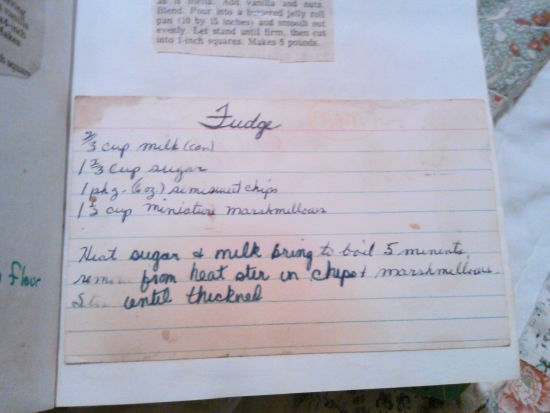 as it melts. Add vanilla and nuts.
Blend. Pour into a buttered jelly roll
pan (10 by 15 inches) and smooth out
evenly. Let stand until firm, then cut
into 1-inch squares. Makes 5 pounds.
Fudge
2/3 cup milk (can)
1 2/3 cup sugar
1 pkg - (6 oz) semisweet chips
1 1/2 cup miniature marshmellows
Heat sugar & milk bring to boil 5 minents
remove from heat ster in chips & marshmellows
until thickned
flour
squares